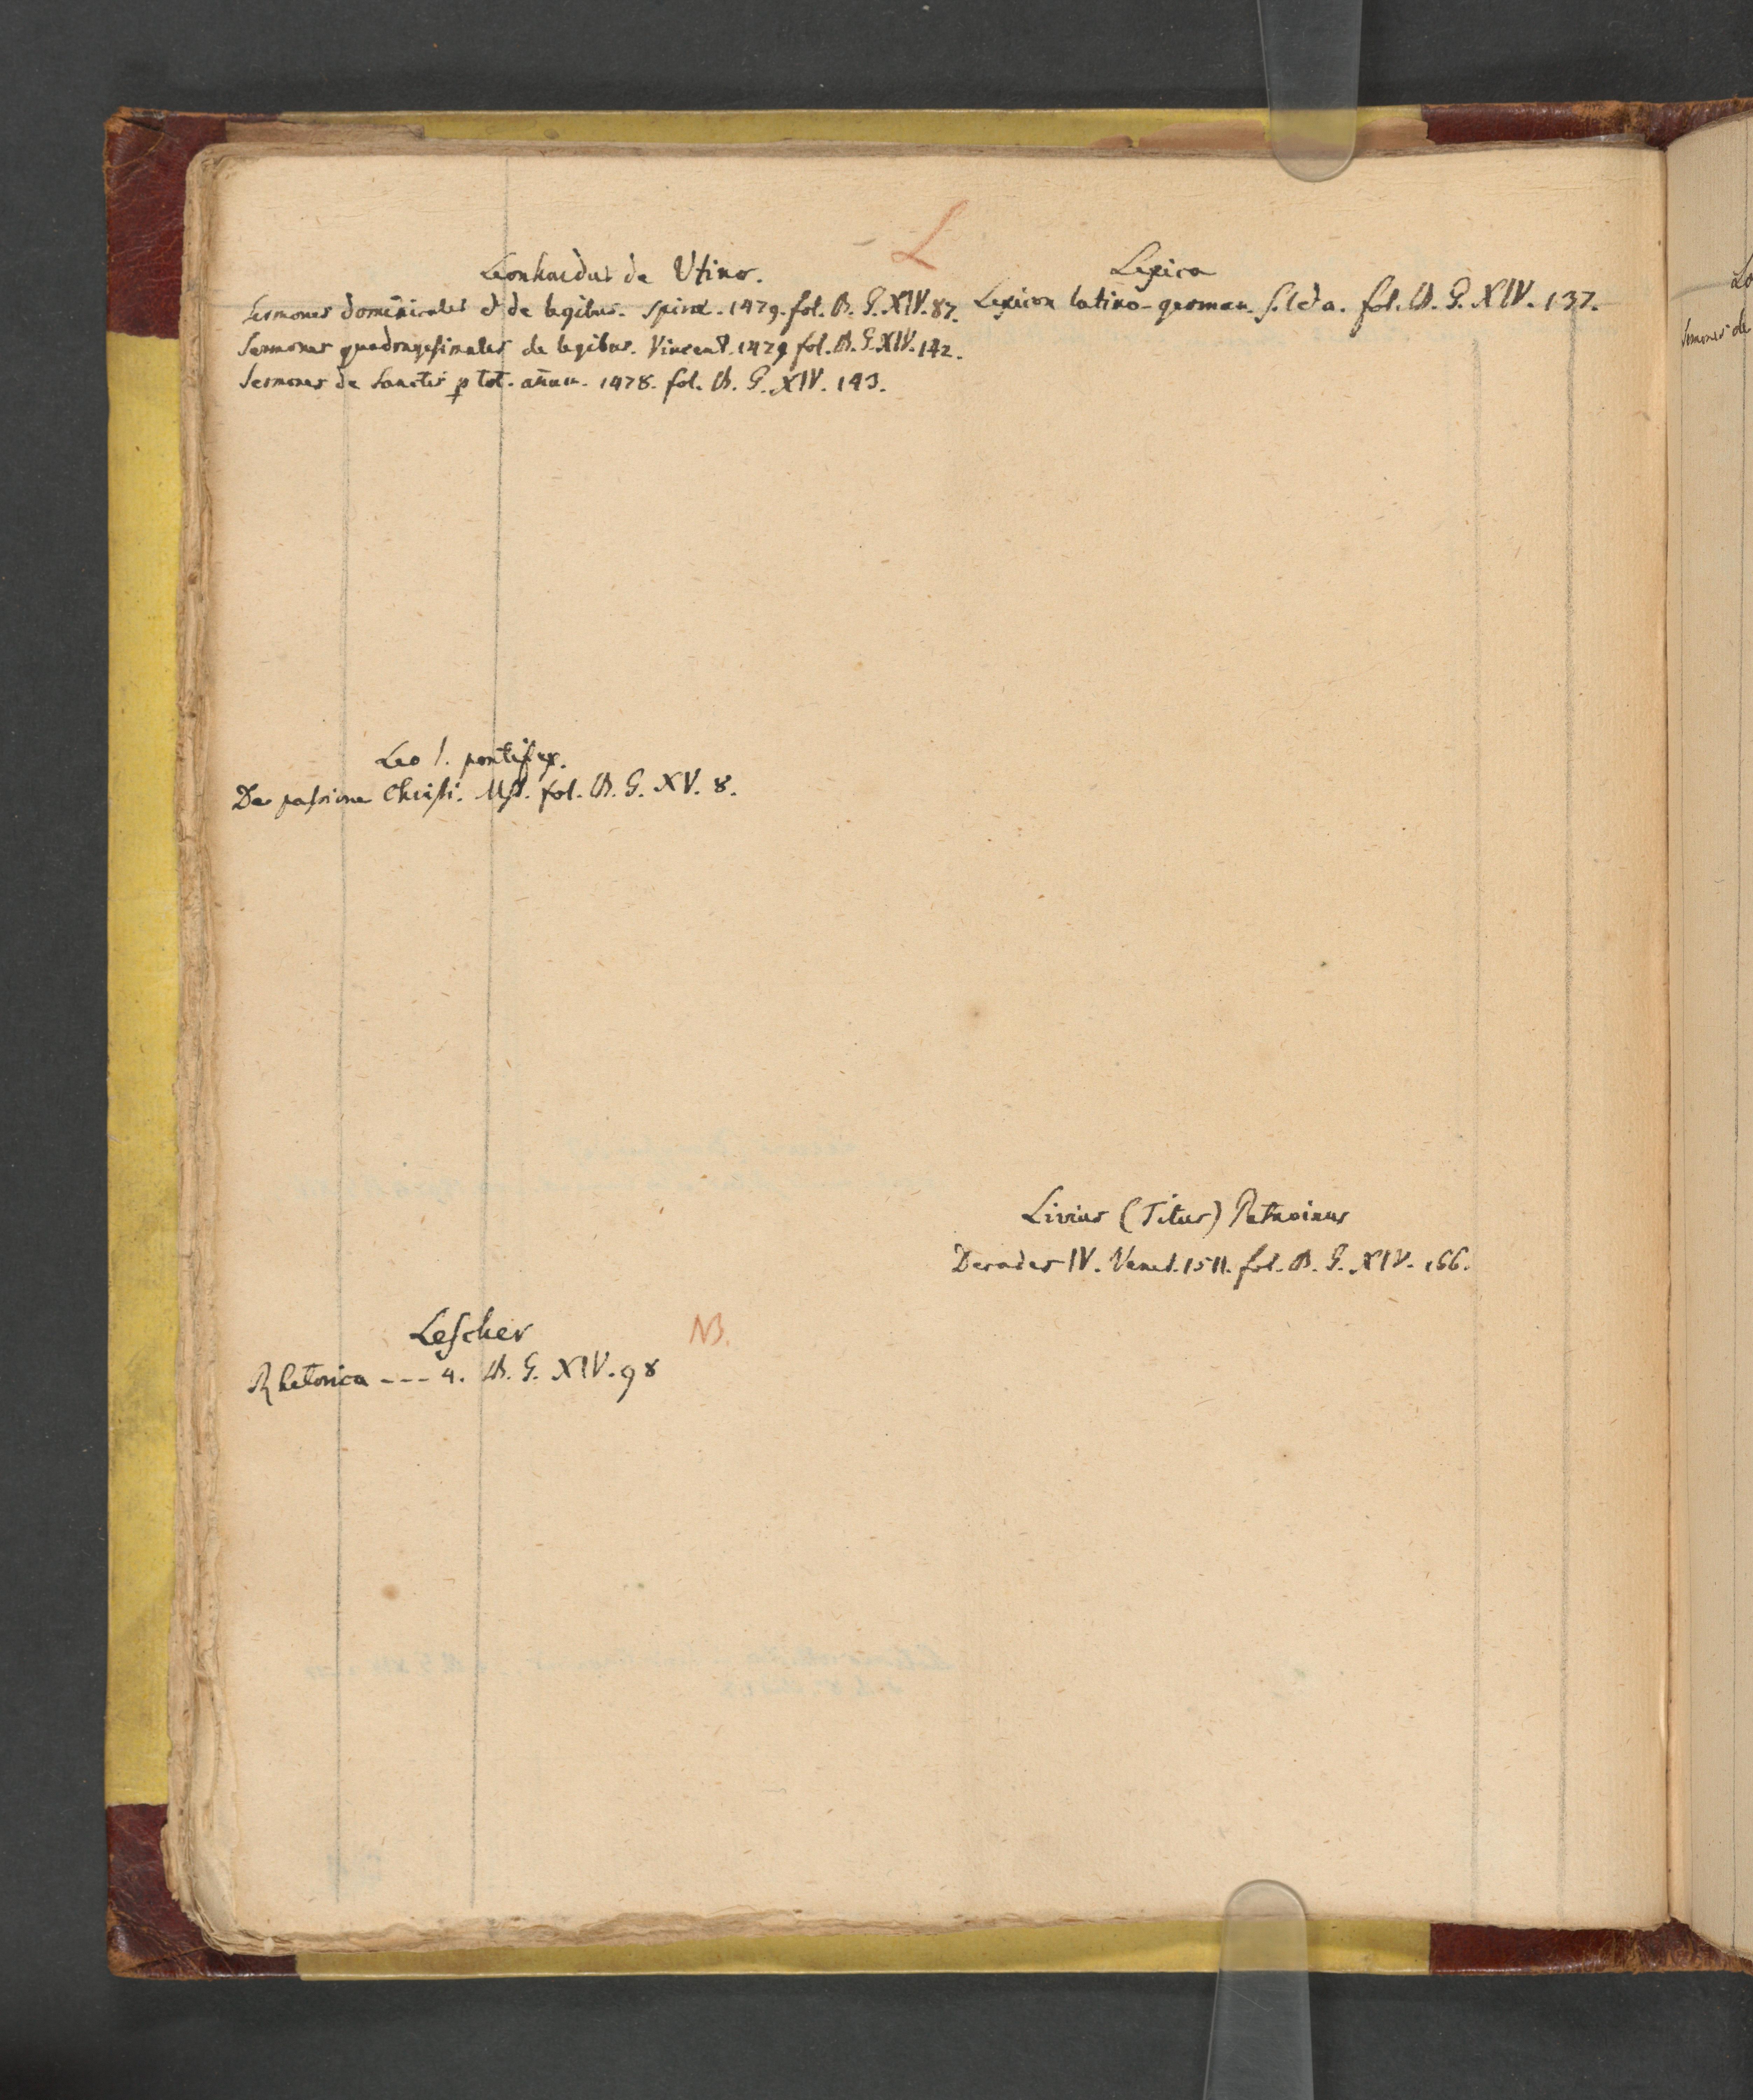 L
Leonhardus de Utino.
Sermones dominicales et de legibus. Spirae. 1479. fol. B. G. XIV. 87.
Sermones quadragesimales de legibus. Vincent. 1479 fol. B. G. XIV. 142.
Sermones de Sanctis p tot. annu. 1478. fol. B. G. XIV. 143.
Leo I. pontifex.
De passione Christi. Mst. fol. B. G. XV. 8.
Lescher NB.
Rhetorica --- 4. B. G. XIV. 98
Lexica
Lexicon latino-german. s. l et a. fol. B. G. XIV. 137.
Livius (Titus) Patavinus
Decades IV. Venet. 1511. fol. B. G. XIV. 166.
Lo
Sermones de